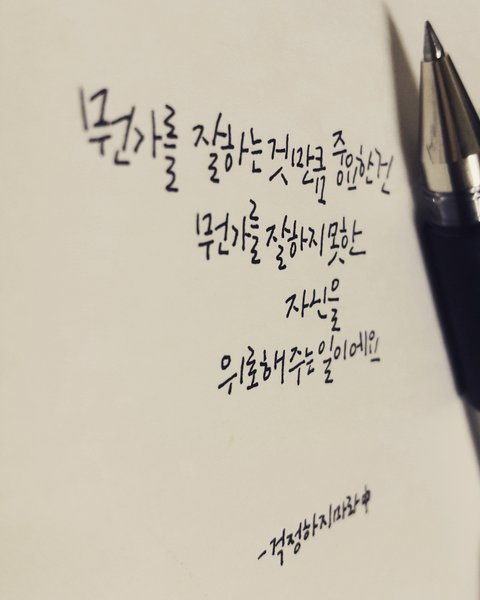 뭔가를 잘하는것만큼 중요한건
뭔가를 잘하지못한
자신을
위로해주는일이에요
-걱정하지마라 中